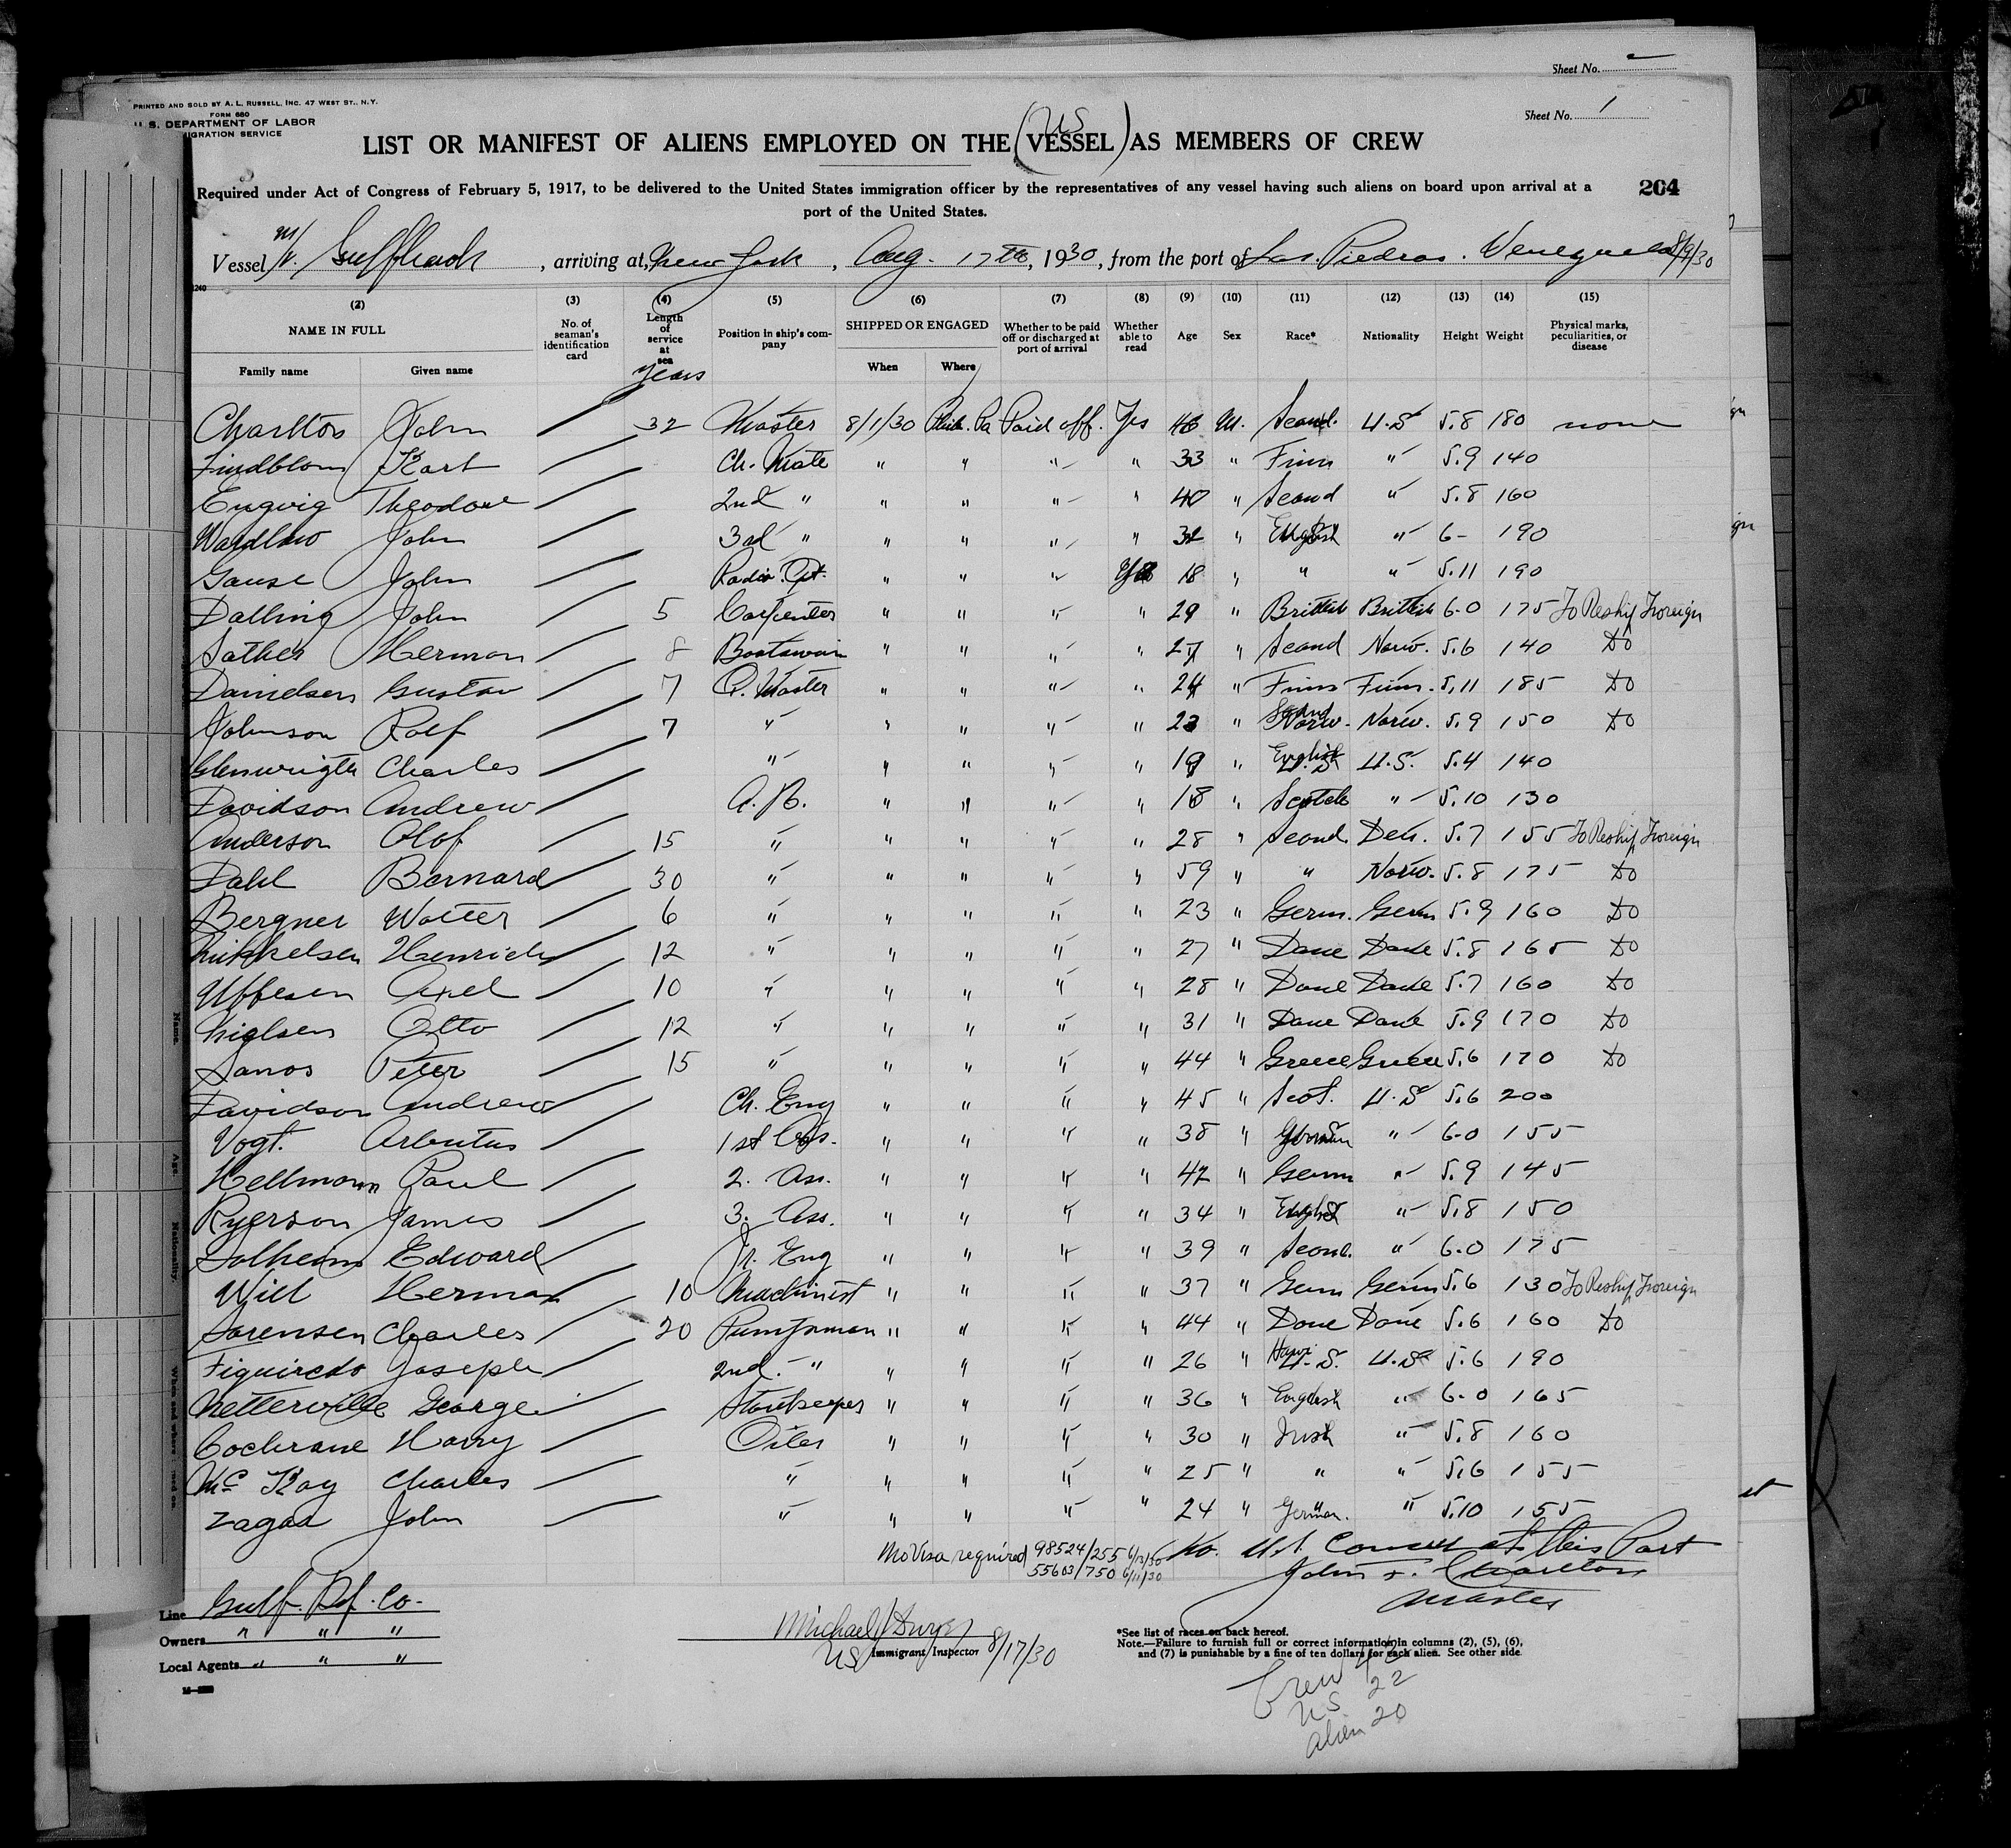 Sheet No.
Sheet No. 1
PRINTED AND SOLD BY A. L. RUSSELL, INC. 47 WEST ST., N.Y.
FORM 680
U. S. DEPARTMENT OF LABOR
MIGRATION SERVICE
LIST OR MANIFEST OF ALIENS EMPLOYED ON THE (US VESSEL) AS MEMBERS OF CREW
Required under Act of Congress of February 5, 1917, to be delivered to the United States immigration officer by the representatives of any vessel having such aliens on board upon arrival at a
port of the United States.
204
Vessel M/V. , arriving at, New York, Aug. 17th, 1930, from the port of Las Piedras. Venezuela 8/9/30
(2) (3) (4) (5) (6) (7) (8) (9) (10) (11) (12) (13) (14) (15)
NAME IN FULL No. of seaman's identification card Length of service at sea Position in ship's company SHIPPED OR ENGAGED Whether to be paid off or discharged at port of arrival Whether able to read Age Sex Race* Nationality Height Weight Physical marks, peculiarities, or disease
Family name Given name years When Where
Charlton John 32 Master 8/1/30 Phila. Pa Paid off. Yes M. Scand. U.S 5.8 180 none
Lindblom Karl Ch. Mate " " " " 33 " Finn " 5.9 140
Engvig Theodore 2nd " " " " " 40 " Scand " 5.8 160
Wardlaw John 3rd " " " " " " English " 6- 190
Gause John Radio Opt. " " " Yes 18 " " " 5.11 190
Dalling John 5 Carpenter " " " " 29 " British British 6-0 175 To Reship Foreign
Sather Herman 8 Boatswain " " " " 27 " Scand Norw. 5.6 140 Do
Danielsen Gustav 7 Q. Master " " " " 24 " Finn Finn. 5.11 185 Do
Johnson Rolf 7 " " " " " 23 " Scand Norw. Norw. 5.9 150 Do
Glenwrigth Charles " " " " " 19 " English U.S. U.S. 5.4 140
Davidson Andrew A.B. " " " " 18 " Scotch " 5.10 130
Anderson Olof 15 " " " " " 28 " Scand. Den. 5.7 155 To Reship Foreign
Dahl Bernard 30 " " " " " 59 " " Norw. 5.8 175 Do
Bergner Walter 6 " " " " " 23 " Germ. Germ 5.9 160 Do
Mikkelsen Henrich 12 " " " " " 27 " Dane Dane 5.8 165 Do
Uffesen Axel 10 " " " " " 28 " Dane Dane 5.7 160 Do
Nielsen Otto 12 " " " " " 31 " Dane Dane 5.9 170 Do
Sanos Peter 15 " " " " " 44 " Greece Greece 5.6 170 Do
Davidson Andrew Ch. Eng " " " " 45 " Scot. U.S 5.6 200
Vogt. Arbutus 1st Ass. " " " " 38 " German " 6-0 155
Hellmann Paul 2. Ass. " " " " 42 " Germ " 5.9 145
Ryerson James 3. Ass. " " " " 34 " English " 5.8 150
Solheim Edward Jr. Eng " " " " 39 " Scand. " 6-0 175
Will Herman 10 Machinist " " " " 37 " Germ Germ 5.6 130 To Reship Foreign
Sorensen Charles 20 Pumpman " " " " 44 " Dane Dane 5.6 160 Do
Figuiredo Joseph 2nd - " " " " " 26 " U.S. U.S 5.6 190
Netterville George Storekeeper " " " " 36 " English " 6-0 165
Cochrane Harry Oiler " " " " 30 " Irish " 5.8 160
Mc Kay Charles " " " " " 25 " " " 5.6 155
Zagar John " " " " " 24 " German. " 5.10 155
No Visa required 98524/255 6/12/30 No. U.S. Consul at this Port
55603/750 6/11/30 John F. Charlton
Master
Line Gulf. Ref. Co.
Owners " " "
Local Agents " " "
Michael
US Immigrant Inspector 8/17/30
*See list of races on back hereof.
Note.—Failure to furnish full or correct information in columns (2), (5), (6),
and (7) is punishable by a fine of ten dollars for each alien. See other side.
Crew 42
US 22
Alien 20